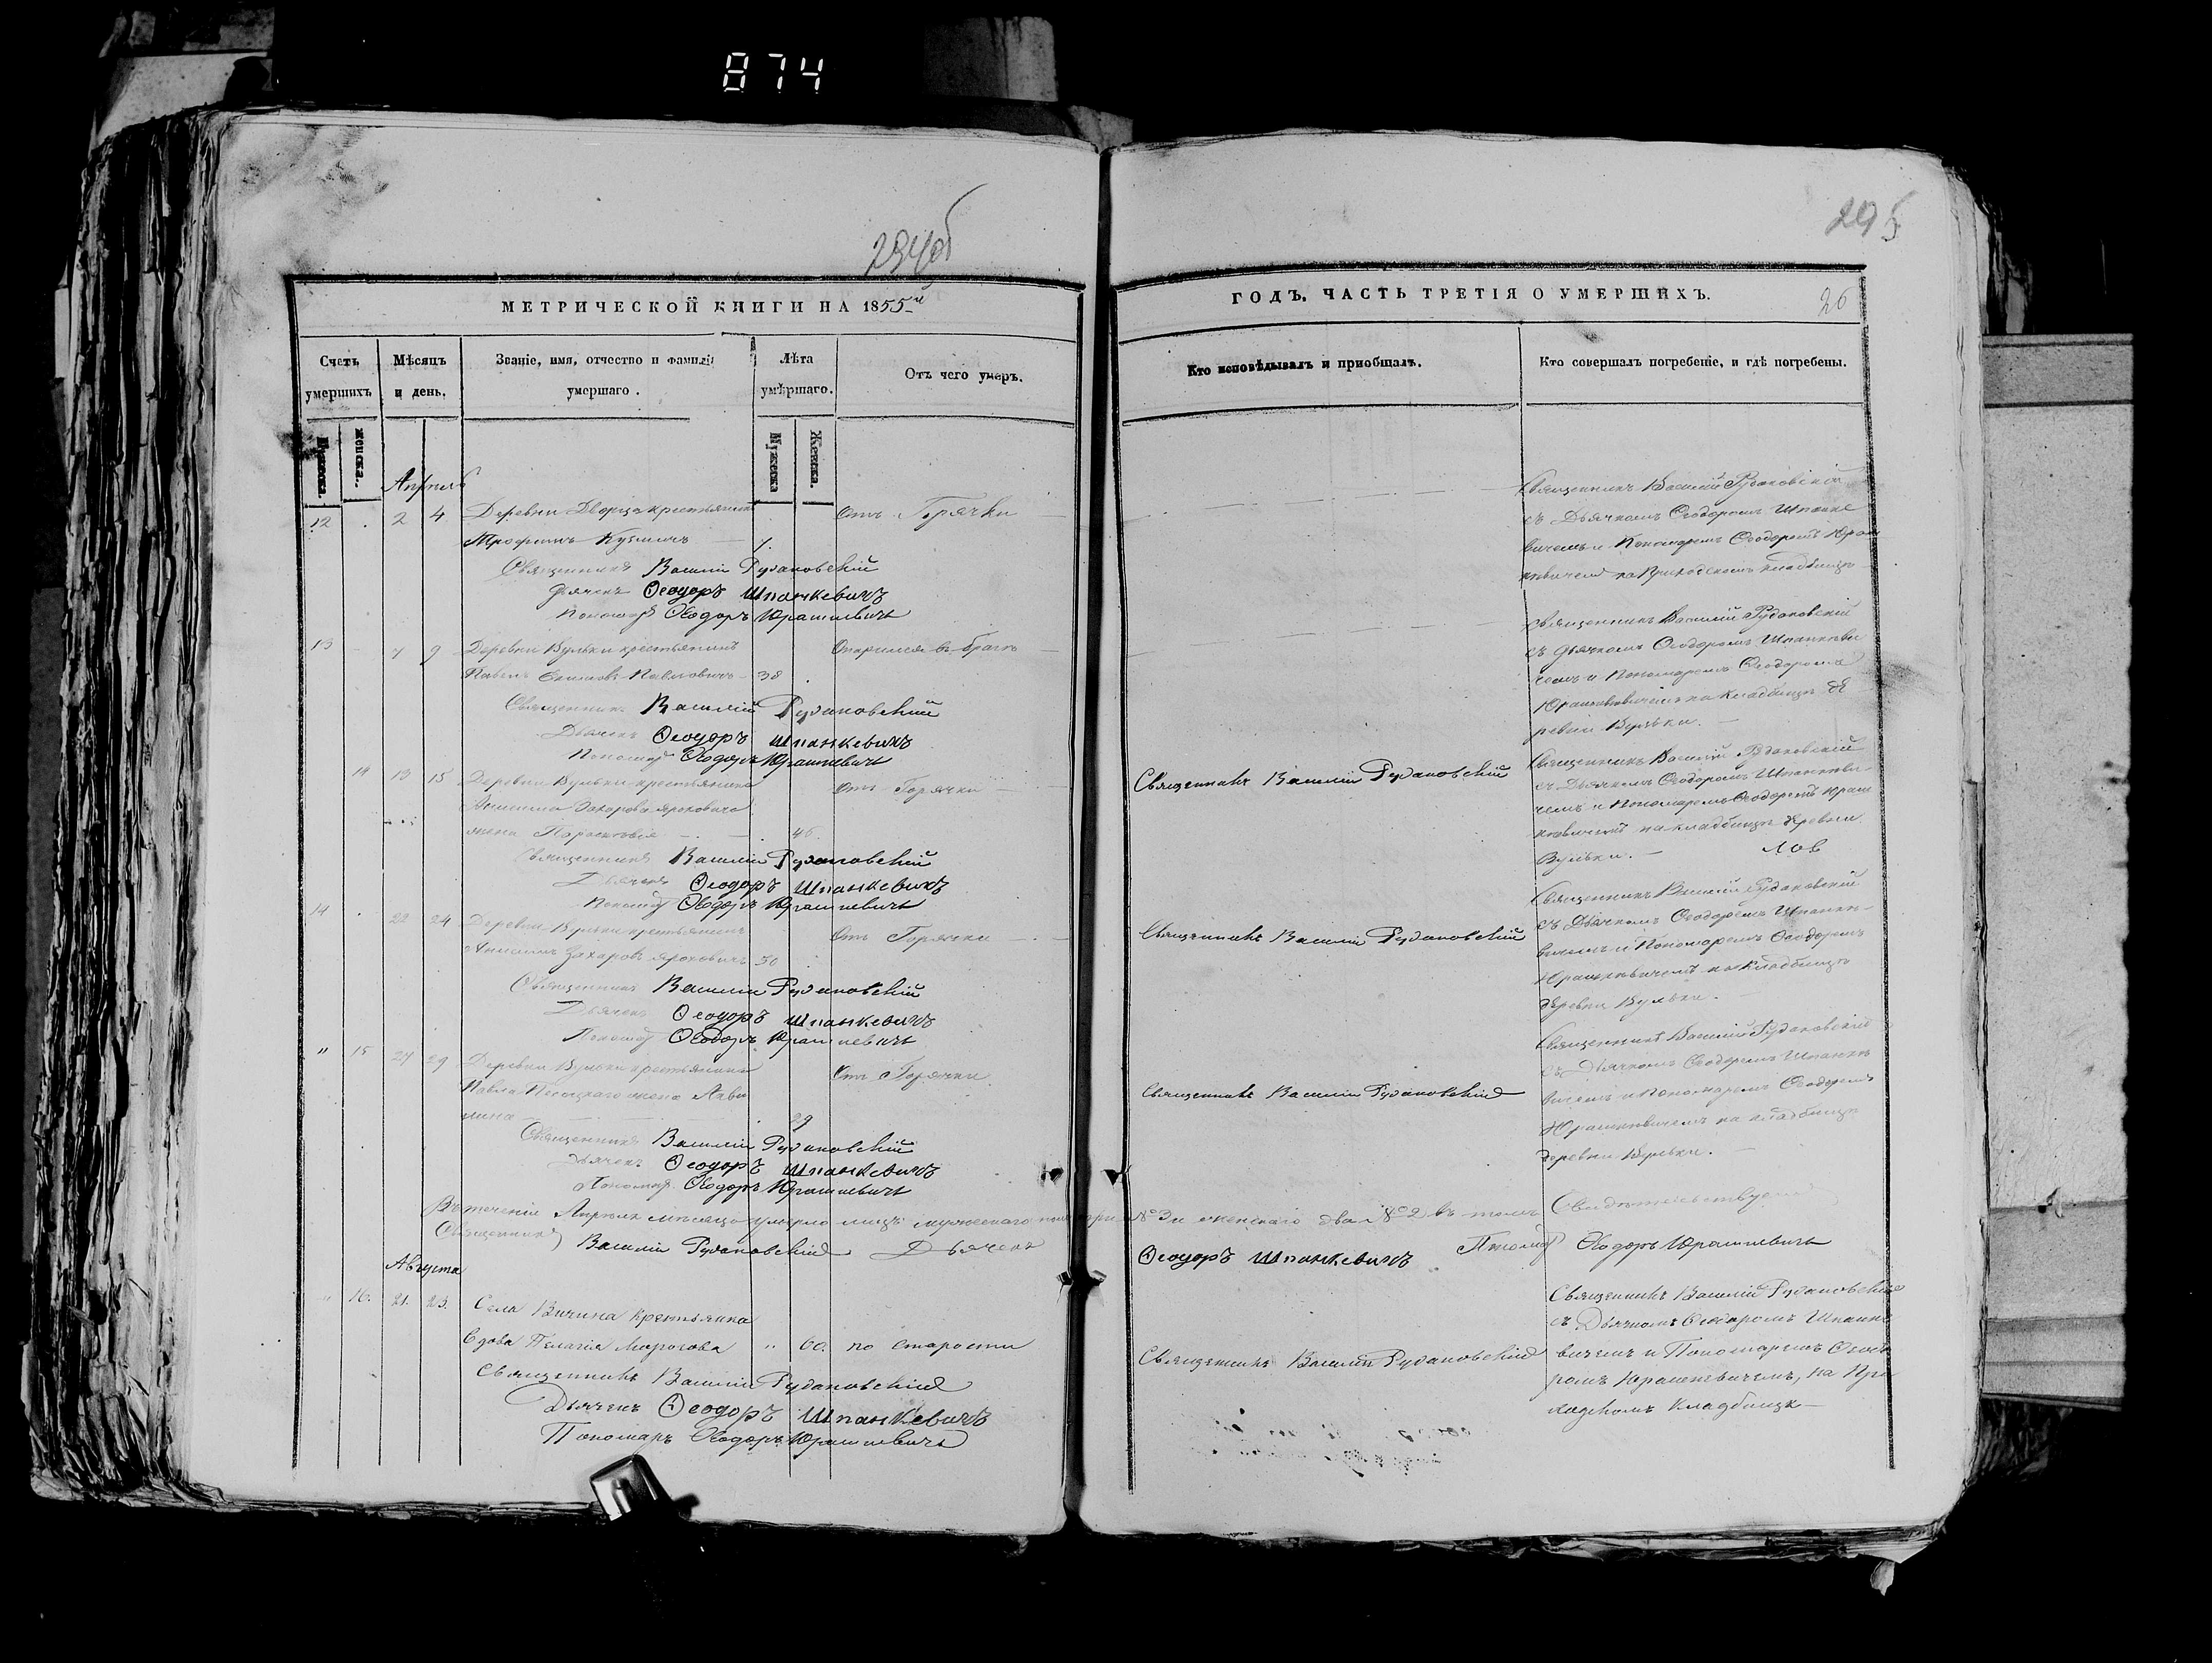 874
294об
295
МЕТРИЧЕСКОЙ КНИГИ НА 1855й
Счетъ умершихъ
Мѣсяцъ и день.
Званіе, имя, отчество и фамилія умершаго.
Лѣта умѣршаго.
Отъ чего умеръ.
Мужеска.
женска.
Мужеска
Женска.
Апрель
12 2 4 Деревни Дворца крестьянинъ Отъ Горячки
Трофимъ Кузмичъ
Священникъ Василій Рудаковскій
Дьячекъ Ѳеодоръ Шпанкевичъ
Пономарь Ѳеодоръ Юрашкевичъ
13 7 9 Деревни Вульки крестьянинъ
Павелъ Павловичъ 38
Священникъ Василій Рудаковскій
Дьячекъ Ѳеодоръ Шпанкевичъ
Пономарь Ѳеодоръ Юрашкевичъ
14 13 15 Деревни Вульки крестьянина Отъ Горячки
Захарова Яроховича
жена Параскевія 46.
Священникъ Василій Рудаковскій
Дьячекъ Ѳеодоръ Шпанкевичъ
Пономарь Ѳеодоръ Юрашкевичъ
14 22 24 Деревни Вульки крестьянинъ Отъ Горячки
Захаровъ Яроховичъ 50
Священникъ Василій Рудаковскій
Дьячекъ Ѳеодоръ Шпанкевичъ
Пономарь Ѳеодоръ Юрашкевичъ
" 15 27 29 Деревни Вульки крестьянина Отъ Горячки
Павла жена
29
Священникъ Василій Рудаковскій
Дьячекъ Ѳеодоръ Шпанкевичъ
Пономарь Ѳеодоръ Юрашкевичъ
Въ теченіе Апреля мѣсяца умерло лицъ мужескаго пола три
Священникъ Василій Рудаковскій Дьячекъ
Августа
" 16. 21. 23. Села Вичина крестьянка
Вдова Пелагія Морозова " 60. по старости
Священникъ Василій Рудаковскій
Дьячекъ Ѳеодоръ Шпанкевичъ
Пономарь Ѳеодоръ Юрашкевичъ
ГОДЪ, ЧАСТЬ ТРЕТІЯ О УМЕРШИХЪ.
26
Кто исповѣдывалъ и приобщалъ.
Кто совершалъ погребеніе, и гдѣ погребены.
Священникъ Василій Рудаковскій
съ Дьячкомъ Ѳеодоромъ Шпанке
вичемъ и Пономаремъ Ѳеодоромъ Юраш
кевичемъ на Приходскомъ кладбищѣ
Священникъ Василій Рудаковскій
съ Дьячкомъ Ѳеодоромъ Шпанкеви
чемъ и Пономаремъ Ѳеодоромъ
Юрашкевичемъ на кладбищѣ де
ревни Вульки.
Священникъ Василій Рудаковскій
Священникъ Василій Рудаковскій
съ Дьячкомъ Ѳеодоромъ Шпанкеви-
чемъ и Пономаремъ Ѳеодоромъ Юраш
кевичемъ на кладбищѣ деревни
Вульки.
Священникъ Василій Рудаковскій
Священникъ Василій Рудаковскій
съ Дьячкомъ Ѳеодоромъ Шпанке-
вичемъ и Пономаремъ Ѳеодоромъ
Юрашкевичемъ на кладбищѣ
деревни Вульки.
Священникъ Василій Рудаковскій
Священникъ Василій Рудаковскій
съ Дьячкомъ Ѳеодоромъ Шпанке
вичемъ и Пономаремъ Ѳеодоромъ
Юрашкевичемъ на кладбищѣ
деревни Вульки.
№ 3 и женскаго два № 2 въ томъ Свидѣтельствуемъ
Ѳеодоръ Шпанкевичъ Пономарь Ѳеодоръ Юрашкевичъ
Священникъ Василій Рудаковскій
Священникъ Василій Рудаковскій
съ Дьячкомъ Ѳеодоромъ Шпанке
вичемъ и Пономаремъ Ѳеодо
ромъ Юрашкевичемъ, на При
ходскомъ кладбищѣ